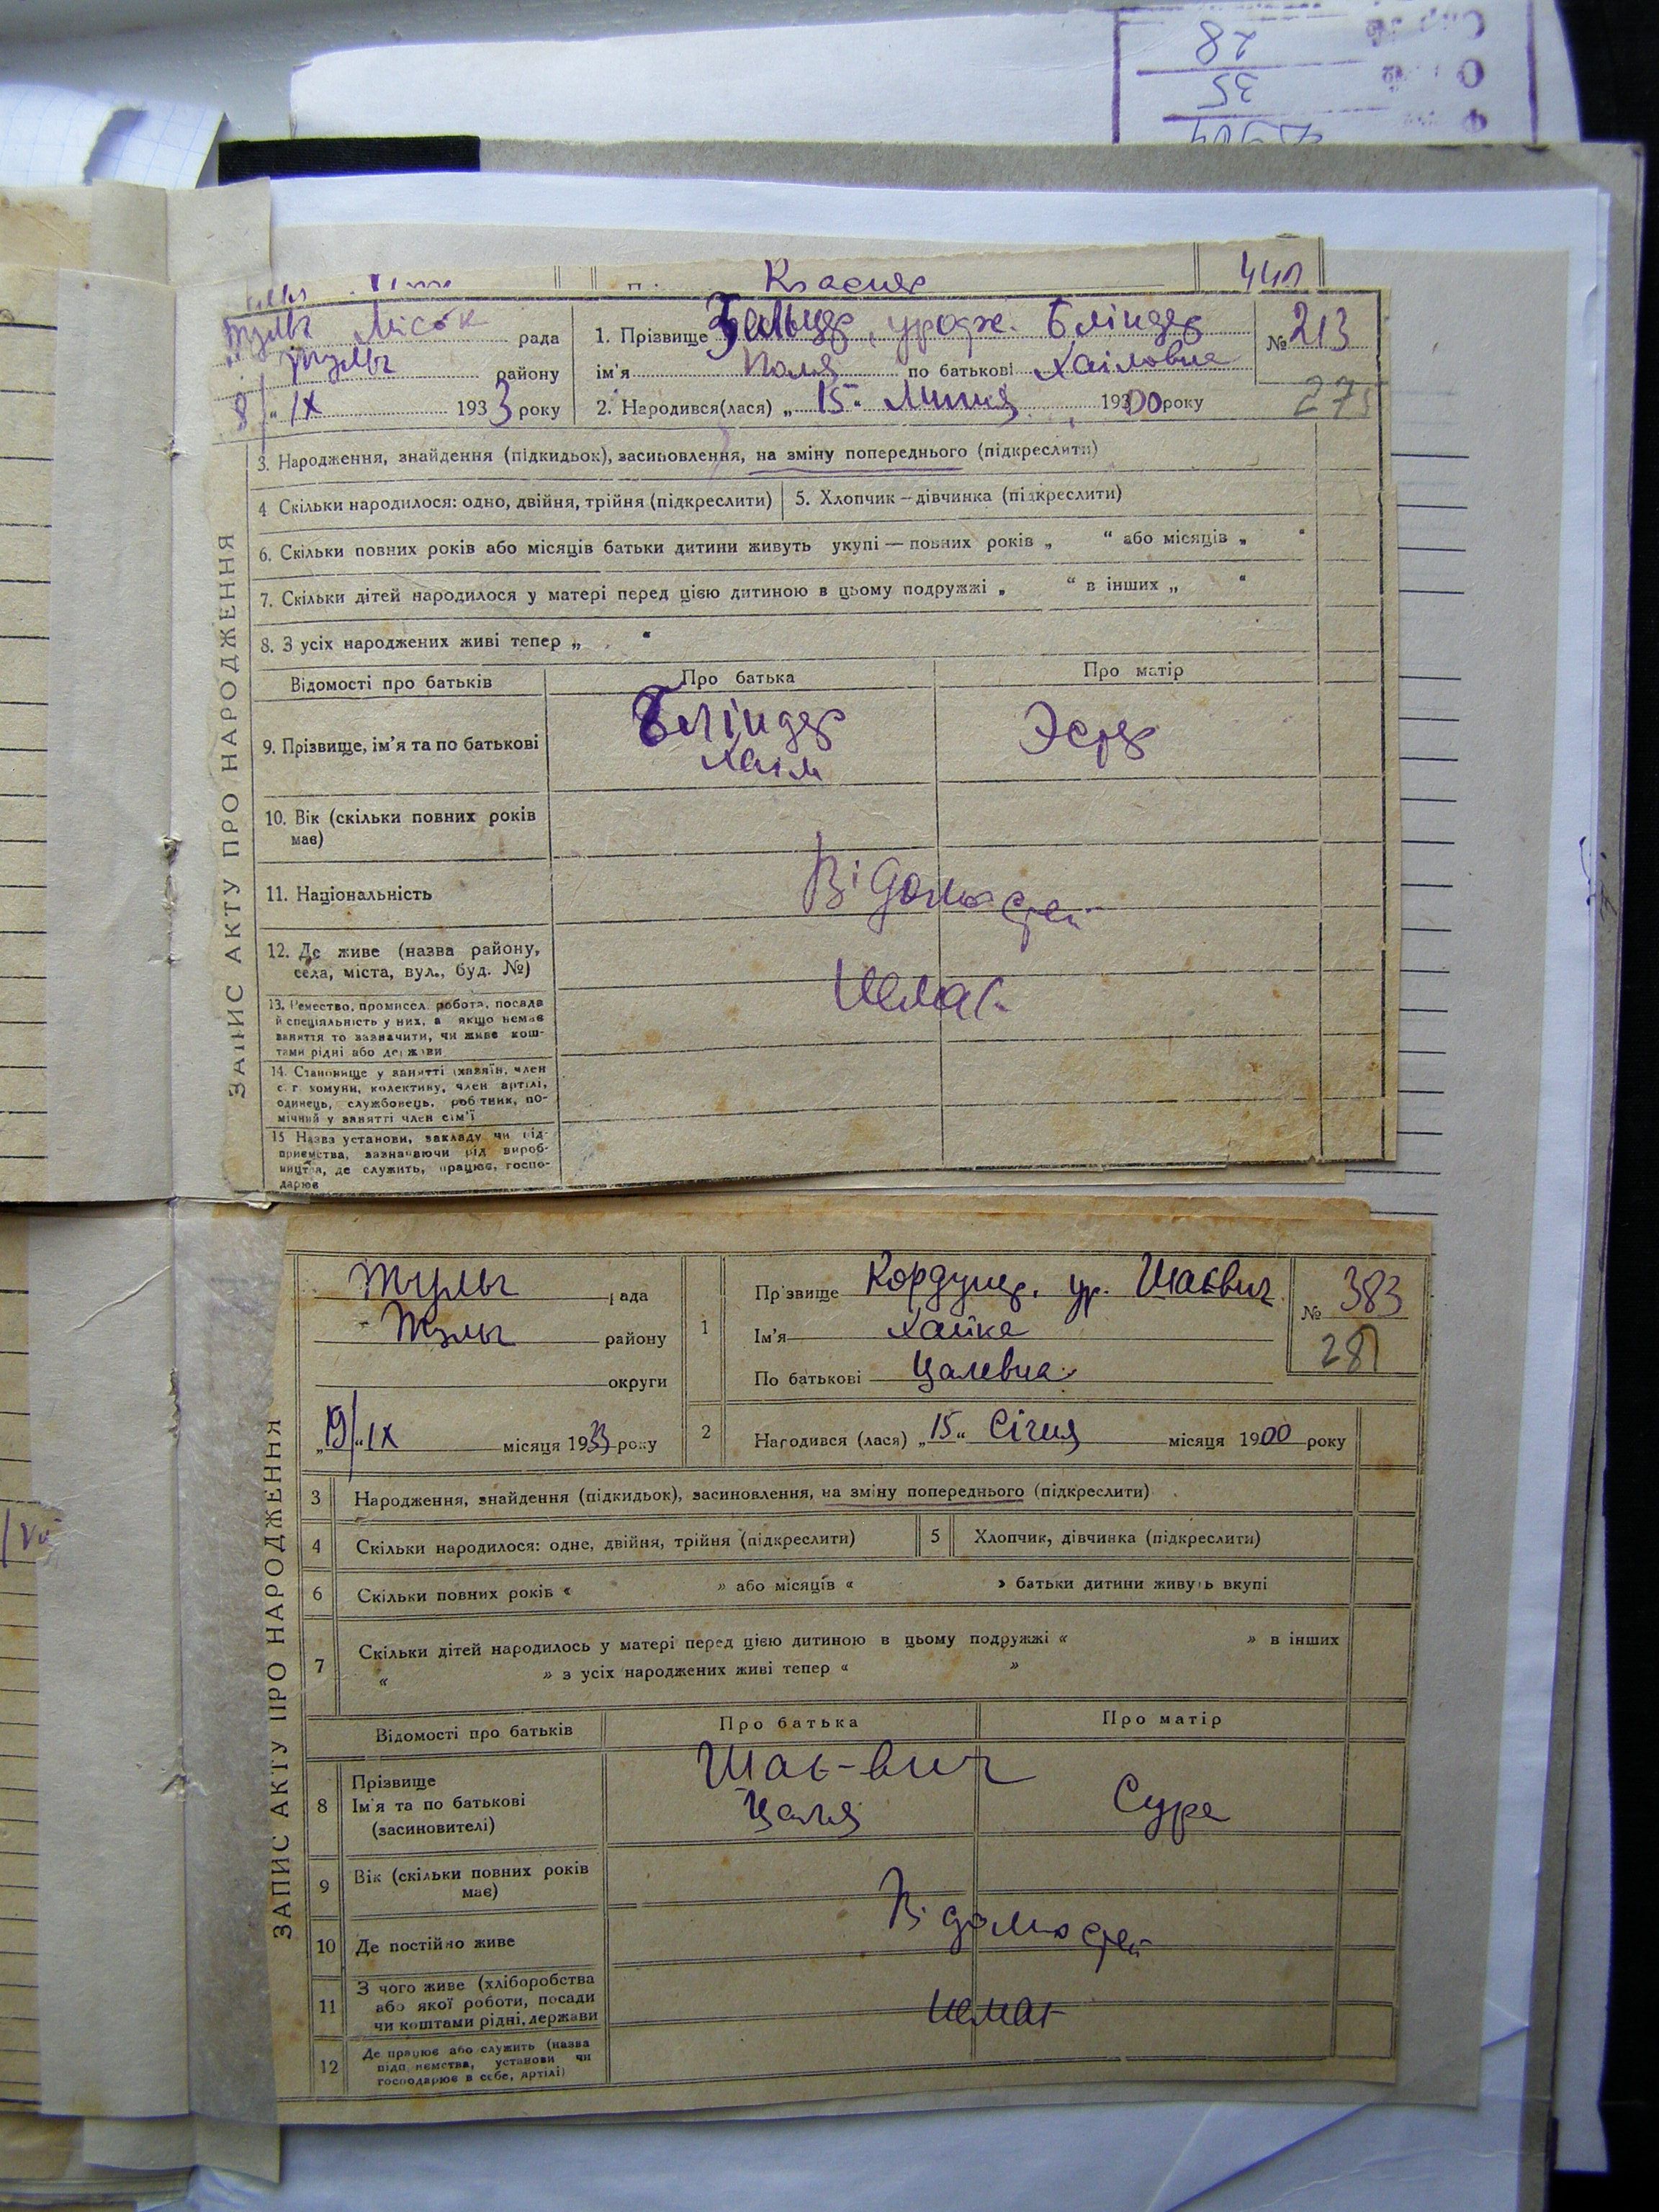 28
35
Красняр
441
Тульч Міськ рада
Тульч району
8/IX 1933 року
1. Прізвище Бальцер, уродж. Бліндер
№ 213
ім'я Поля по батькові Хаімовна
2. Народився(лася) „15" Липня 1900 року
275
ЗАПИС АКТУ ПРО НАРОДЖЕННЯ
3. Народження, знайдення (підкидьок), засиновлення, на зміну попереднього (підкреслити)
4 Скільки народилося: одно, двійня, трійня (підкреслити)
5. Хлопчик—дівчинка (підкреслити)
6. Скільки повних років або місяців батьки дитини живуть укупі — повних років „ " або місяців „ "
7. Скільки дітей народилося у матері перед цією дитиною в цьому подружжі „ " в інших „ "
8. З усіх народжених живі тепер „ "
Відомості про батьків
Про батька
Про матір
9. Прізвище, ім'я та по батькові
Бліндер
Хаім
Эстер
10. Вік (скільки повних років
має)
11. Національність
Відомостей
12. Де живе (назва району,
села, міста, вул., буд. №)
Немає
13. Ремество, промисел, робота, посада
й спеціяльність у них, а якщо немає
заняття то зазначити, чи живе кош-
тами рідні або держави
14. Становище у занятті (хазяїн, член
с. г. комуни, колективу, член артілі,
одинець, службовець, робітник, по-
мічний у занятті член сім'ї
15 Назва установи, закладу чи під-
приємства, зазначаючи рід вироб-
ництва, де служить, працює, госпо-
дарює
Тульч рада
Тульч району
округи
„19/" IX місяця 1933 року
1
Прізвище Кордунер, ур. Шаевич
Ім'я Хайка
По батькові Цалевна
№ 383
281
2
Народився (лася) „15" Січня місяця 1900 року
ЗАПИС АКТУ ПРО НАРОДЖЕННЯ
3 Народження, знайдення (підкидьок), засиновлення, на зміну попереднього (підкреслити)
4 Скільки народилося: одне, двійня, трійня (підкреслити)
5 Хлопчик, дівчинка (підкреслити)
6 Скільки повних років « » або місяців « » батьки дитини живуть вкупі
7 Скільки дітей народилось у матері перед цією дитиною в цьому подружжі « » в інших
« » з усіх народжених живі тепер « »
Відомості про батьків
Про батька
Про матір
8
Прізвище
Ім'я та по батькові
(засиновителі)
Шає-вич
Цаля
Сура
9 Вік (скільки повних років
має)
Відомостей
10 Де постійно живе
11
З чого живе (хліборобства
або якої роботи, посади
чи коштами рідні, держави
Немає
12
Де працює або служить (назва
підприємства, установи чи
господарює в себе, артілі)